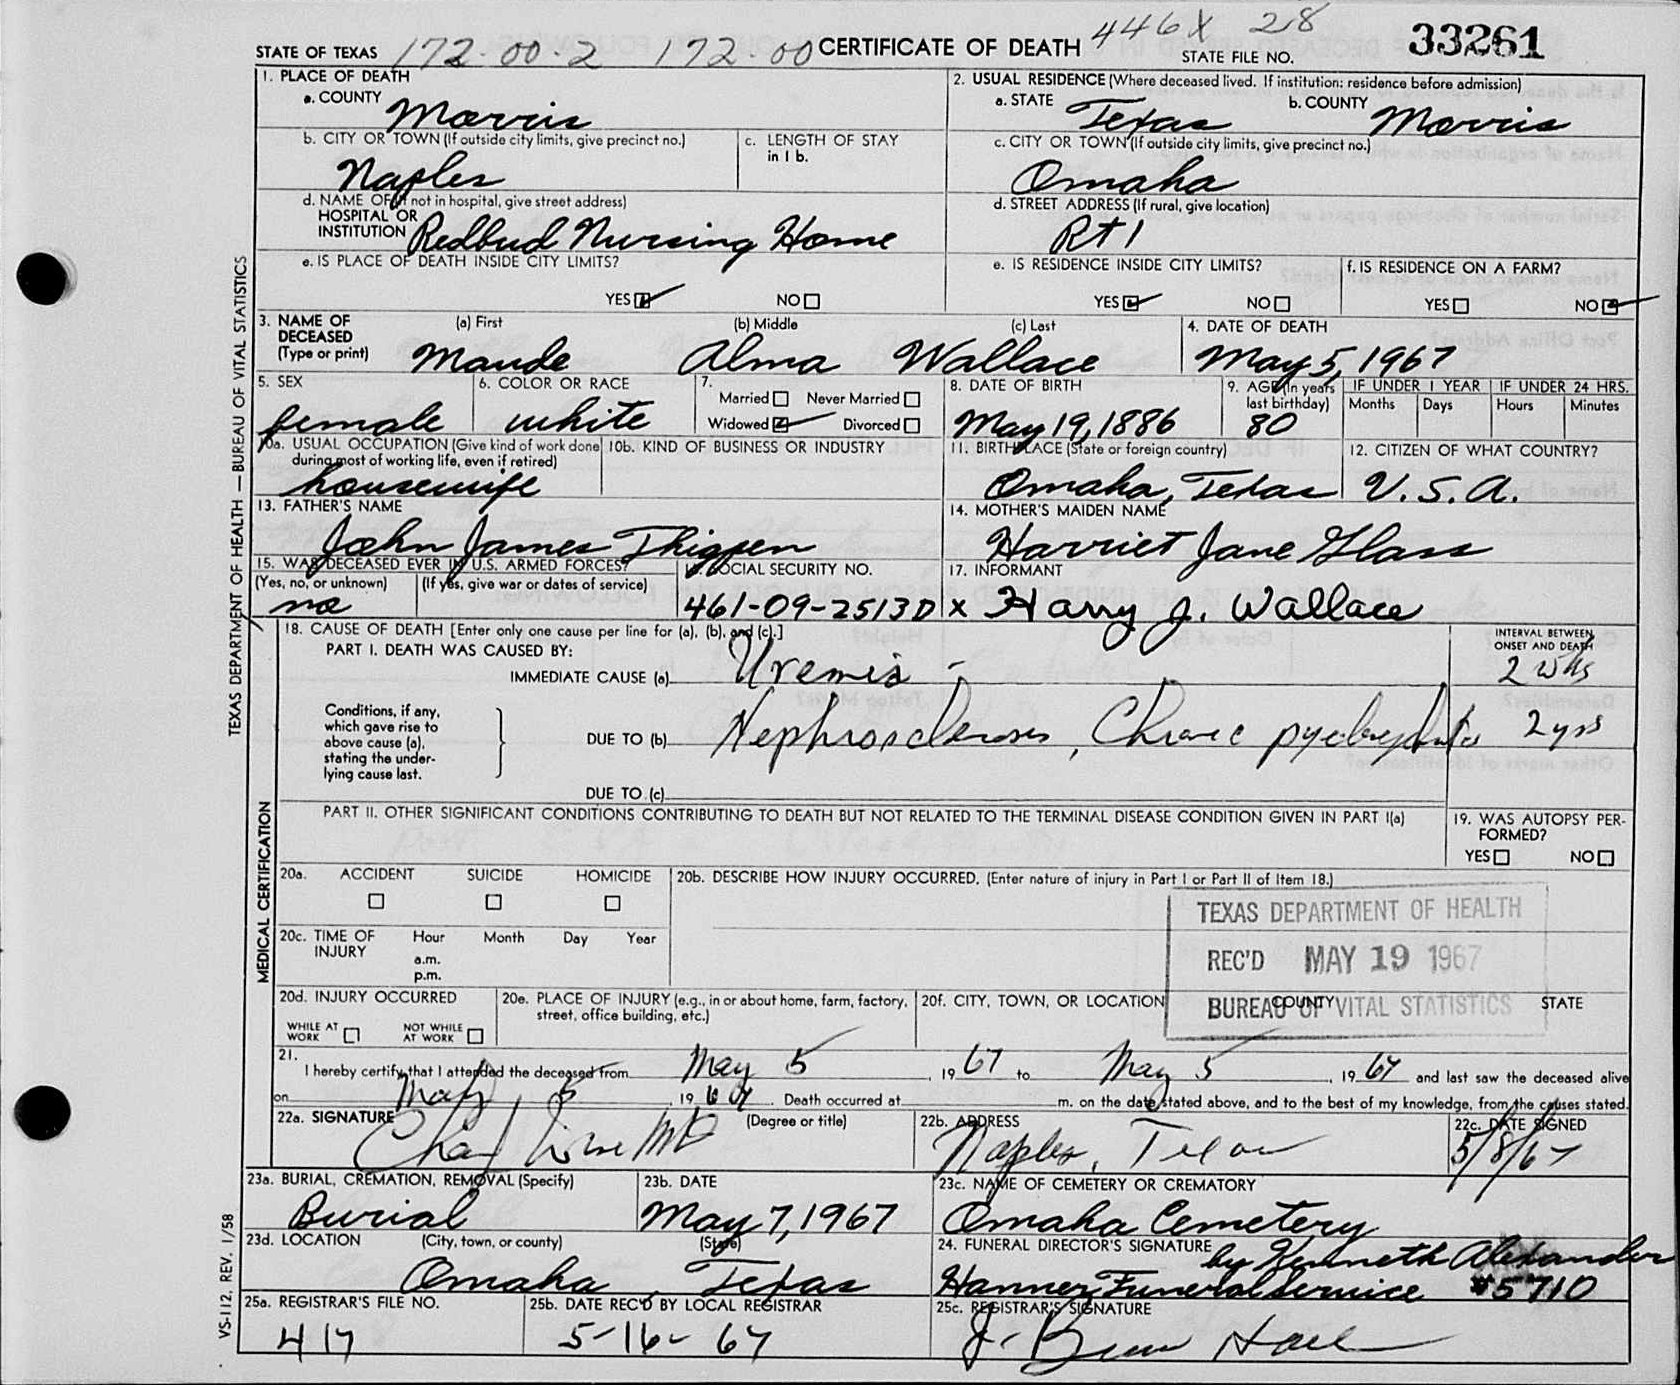 446X 28
STATE OF TEXAS 172-00-2 172-00 CERTIFICATE OF DEATH STATE FILE NO. 33261
1. PLACE OF DEATH
a. COUNTY Morris
2. USUAL RESIDENCE (Where deceased lived. If institution: residence before admission)
a. STATE Texas b. COUNTY Morris
b. CITY OR TOWN (If outside city limits, give precinct no.) Naples
c. LENGTH OF STAY in 1 b.
c. CITY OR TOWN (If outside city limits, give precinct no.) Omaha
d. NAME OF (If not in hospital, give street address)
HOSPITAL OR
INSTITUTION Redbud Nursing Home
d. STREET ADDRESS (If rural, give location) Rt 1
e. IS PLACE OF DEATH INSIDE CITY LIMITS?
YES NO
e. IS RESIDENCE INSIDE CITY LIMITS?
YES NO
f. IS RESIDENCE ON A FARM?
YES NO
3. NAME OF DECEASED (Type or print)
(a) First (b) Middle (c) Last
Maude Alma Wallace
4. DATE OF DEATH
May 5, 1967
5. SEX female
6. COLOR OR RACE white
7. Married Never Married
Widowed Divorced
8. DATE OF BIRTH May 19, 1886
9. AGE (In years last birthday) 80
IF UNDER 1 YEAR Months Days
IF UNDER 24 HRS. Hours Minutes
10a. USUAL OCCUPATION (Give kind of work done during most of working life, even if retired)
housewife
10b. KIND OF BUSINESS OR INDUSTRY
11. BIRTHPLACE (State or foreign country)
Omaha, Texas
12. CITIZEN OF WHAT COUNTRY?
U.S.A.
13. FATHER'S NAME
John James Thigpen
14. MOTHER'S MAIDEN NAME
Harriet Jane Glass
15. WAS DECEASED EVER IN U.S. ARMED FORCES?
(Yes, no, or unknown) (If yes, give war or dates of service)
no
16. SOCIAL SECURITY NO.
461-09-2513D
17. INFORMANT
x Harry J. Wallace
18. CAUSE OF DEATH [Enter only one cause per line for (a), (b), and (c).]
PART I. DEATH WAS CAUSED BY:
IMMEDIATE CAUSE (a) Uremia -
INTERVAL BETWEEN ONSET AND DEATH
2 wks
Conditions, if any, which gave rise to above cause (a), stating the underlying cause last.
DUE TO (b) Nephrosclerosis, Chronic pyelonephritis 2 yrs
DUE TO (c)
PART II. OTHER SIGNIFICANT CONDITIONS CONTRIBUTING TO DEATH BUT NOT RELATED TO THE TERMINAL DISEASE CONDITION GIVEN IN PART I(a)
19. WAS AUTOPSY PERFORMED?
YES NO
20a. ACCIDENT SUICIDE HOMICIDE
20b. DESCRIBE HOW INJURY OCCURRED. (Enter nature of injury in Part I or Part II of Item 18.)
20c. TIME OF INJURY Hour Month Day Year
a.m.
p.m.
TEXAS DEPARTMENT OF HEALTH
REC'D MAY 19 1967
BUREAU OF VITAL STATISTICS
20d. INJURY OCCURRED
WHILE AT WORK NOT WHILE AT WORK
20e. PLACE OF INJURY (e.g., in or about home, farm, factory, street, office building, etc.)
20f. CITY, TOWN, OR LOCATION COUNTY STATE
21. I hereby certify that I attended the deceased from May 5, 1967 to May 5, 1967 and last saw the deceased alive
on May 5, 1967. Death occurred at m. on the date stated above, and to the best of my knowledge, from the causes stated.
22a. SIGNATURE (Degree or title)
MD
22b. ADDRESS
Naples, Texas
22c. DATE SIGNED
5/8/67
23a. BURIAL, CREMATION, REMOVAL (Specify)
Burial
23b. DATE
May 7, 1967
23c. NAME OF CEMETERY OR CREMATORY
Omaha Cemetery
23d. LOCATION (City, town, or county) (State)
Omaha, Texas
24. FUNERAL DIRECTOR'S SIGNATURE by Kenneth Alexander
Hanner Funeral Service #5710
25a. REGISTRAR'S FILE NO.
417
25b. DATE REC'D BY LOCAL REGISTRAR
5-16-67
25c. REGISTRAR'S SIGNATURE
J.
TEXAS DEPARTMENT OF HEALTH — BUREAU OF VITAL STATISTICS
MEDICAL CERTIFICATION
VS-112, REV. 1/58